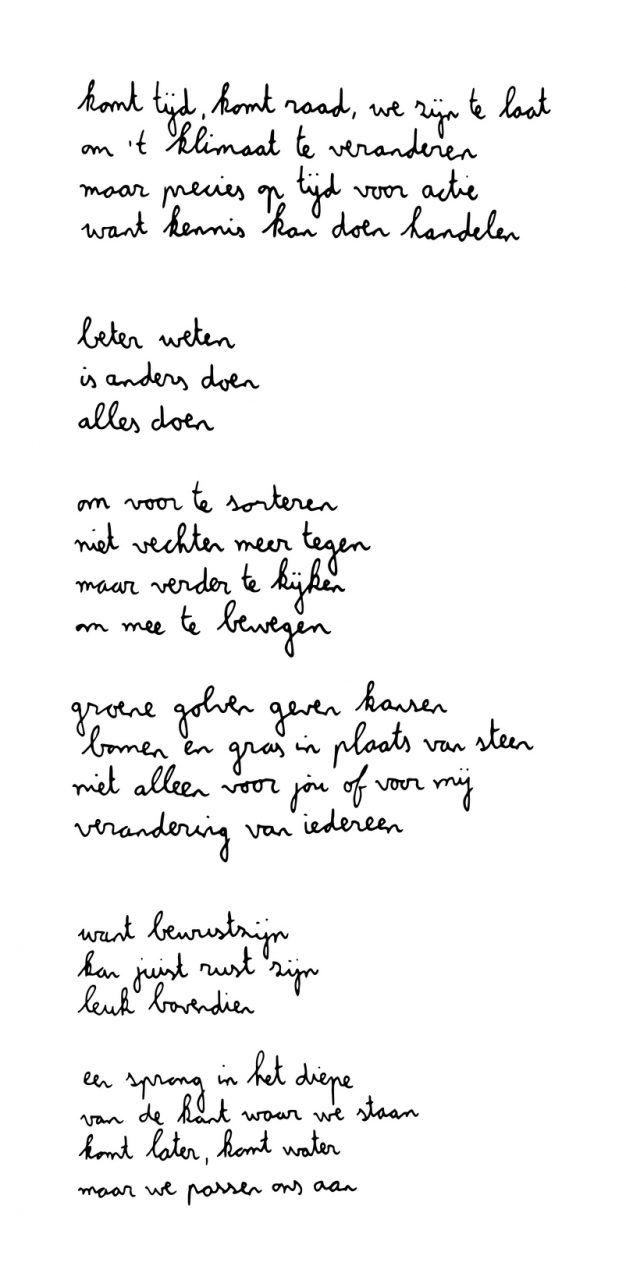 komt tijd, komt raad, we zijn te laat
om 't klimaat te veranderen
maar precies op tijd voor actie
want kennis kan doen handelen
beter weten
is anders doen
alles doen
om voor te sorteren
niet vechten meer tegen
maar verder te kijken
om mee te bewegen
groene golven geven kansen
bomen en gras in plaats van steen
niet alleen voor jou of voor mij
verandering van iedereen
want bewustzijn
kan juist rust zijn
leuk bovendien
een sprong in het diepe
van de kant waar we staan
komt later, komt water
maar we passen ons aan